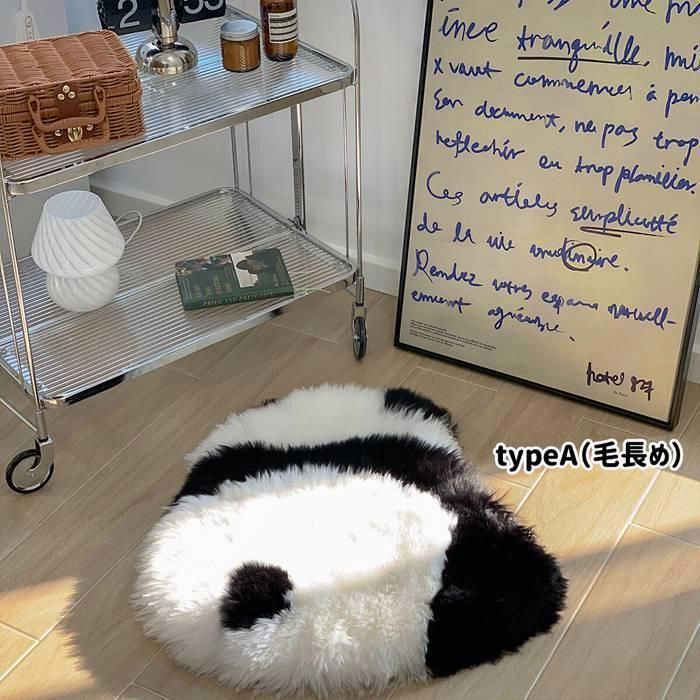 2 53
ince tranquille, mi
x vaut commencer à pen
Son document, ne pas trop
reflechir ou trop planifier
Ces articles simplicité
de la vie
Rendez votres espace naturell-
ement agréable.
hotel 827
typeA(毛長め)
PRIDE AND PREJUDICE